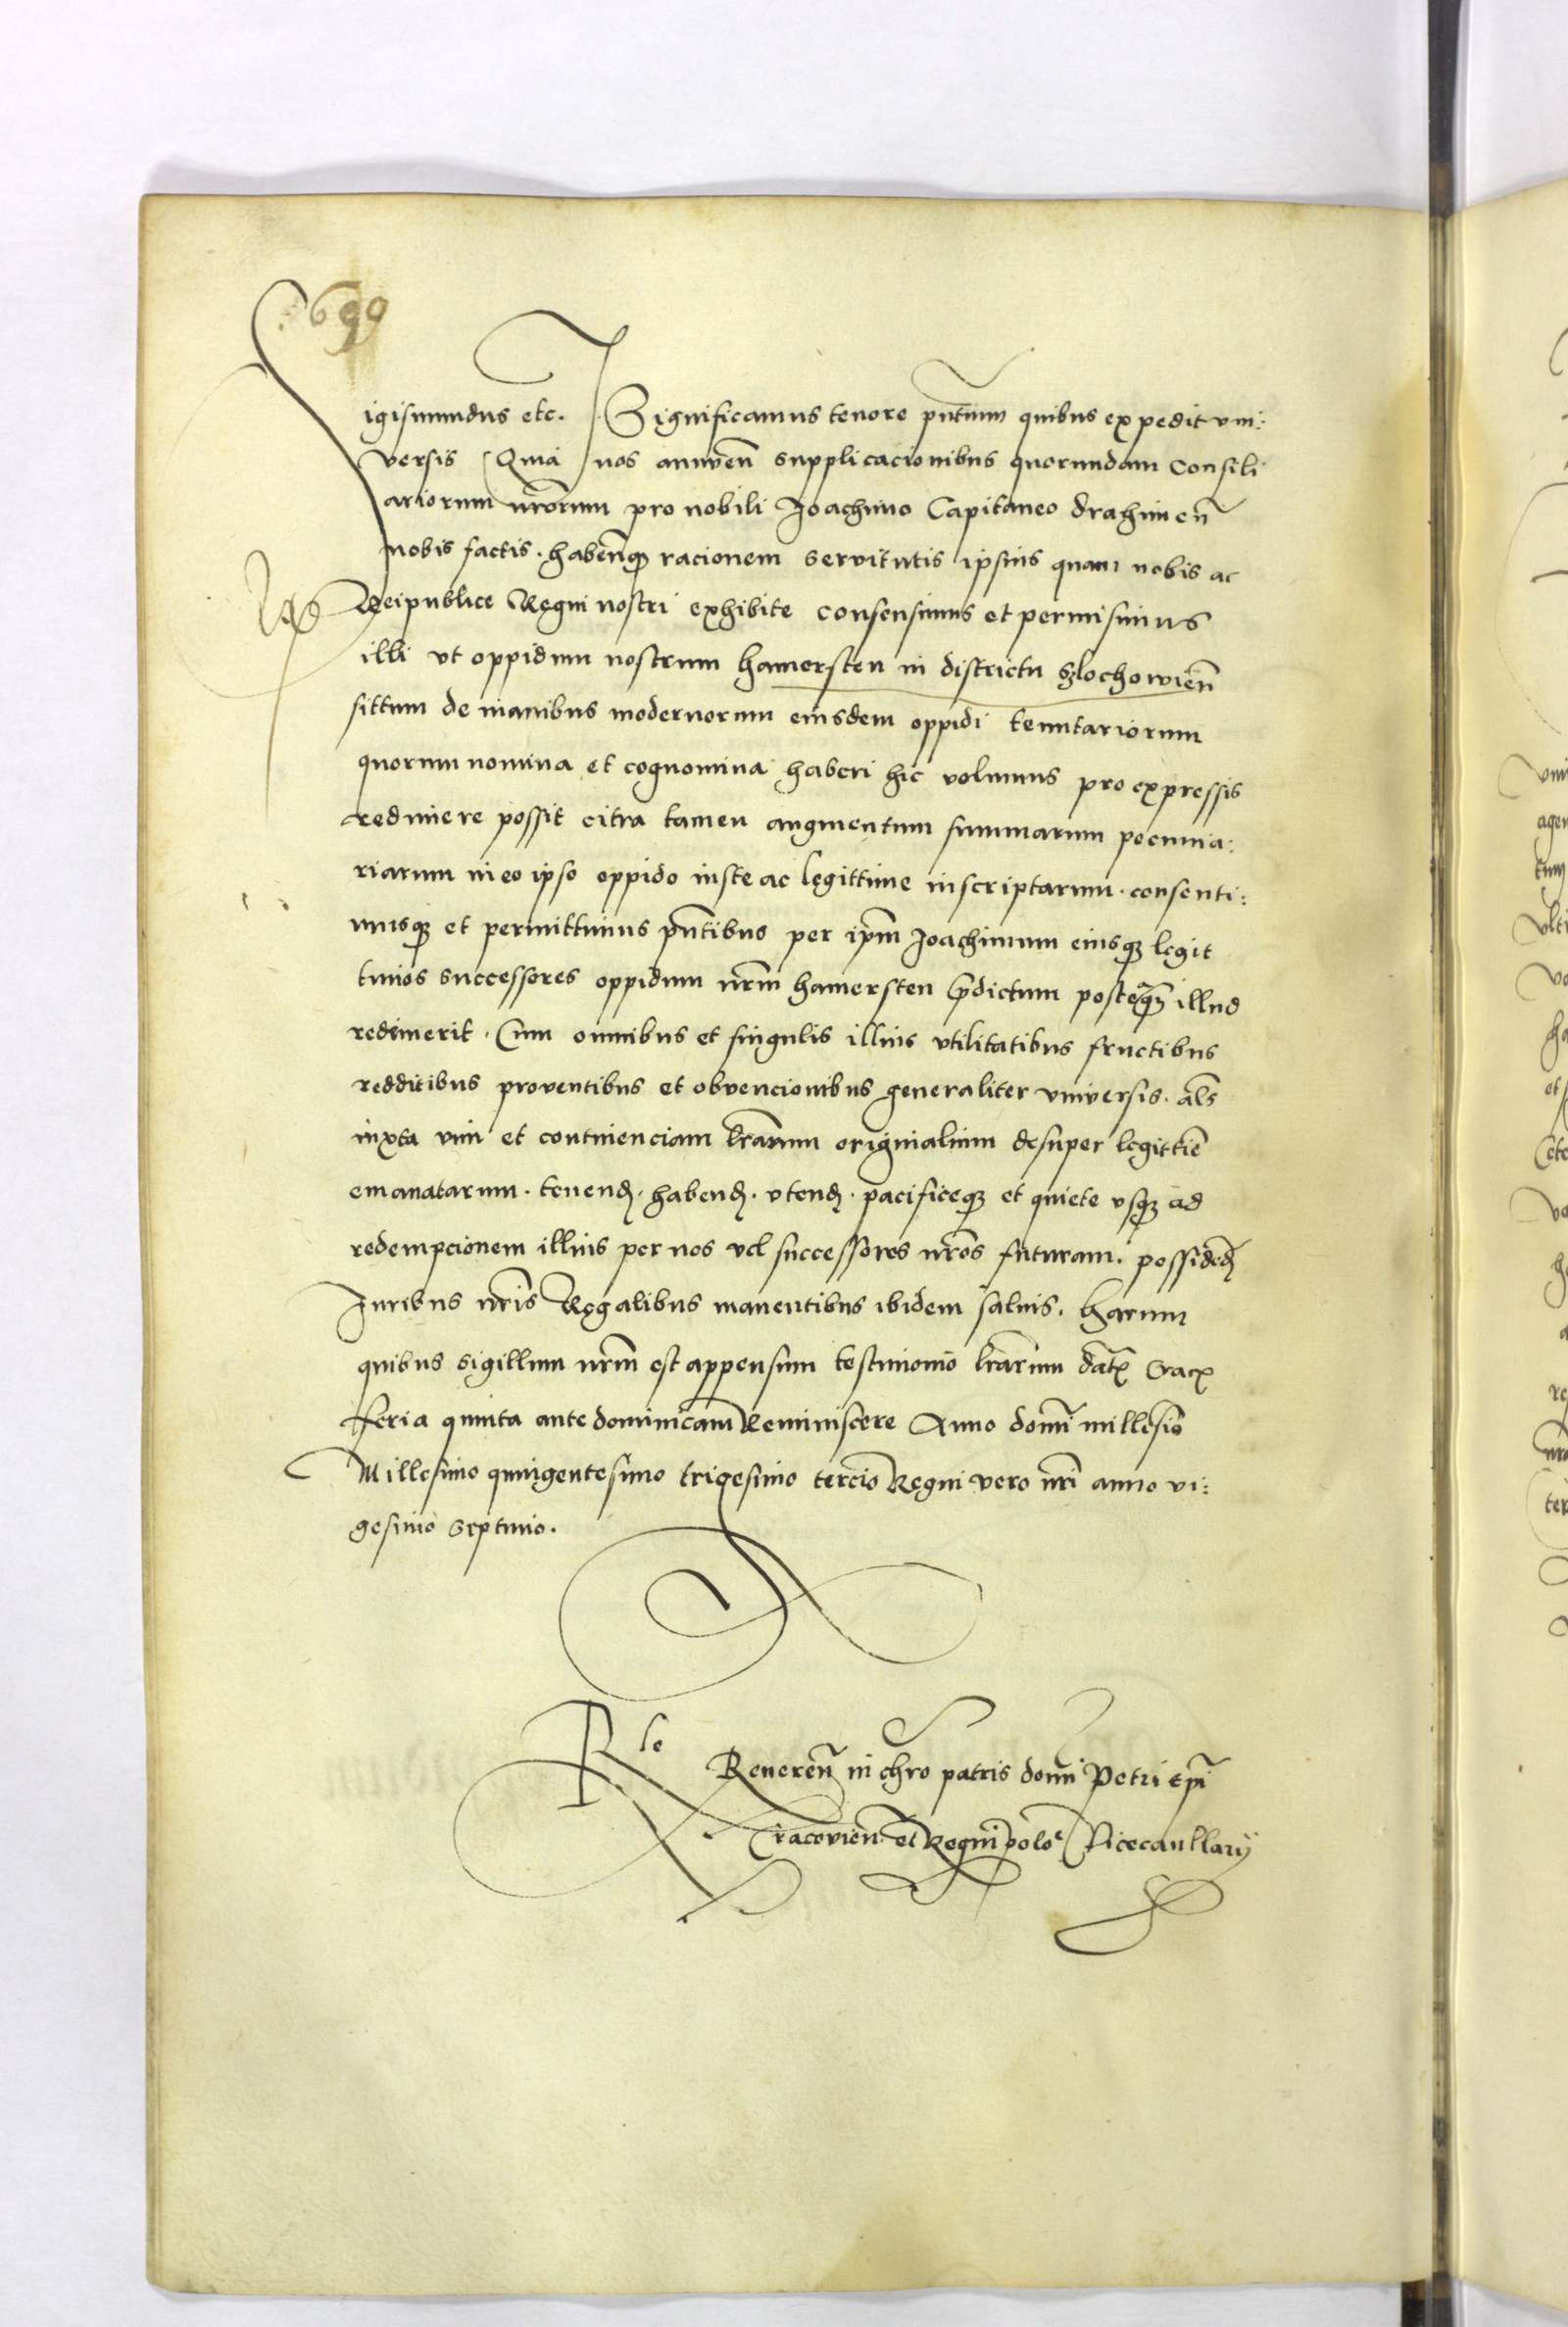 699
Sigismundus etc. Significamus tenore pntium quibus expedit vni:
versis Quia nos annuen supplicacionibus quorundam Consili
ariorum nrorum pro nobili Joachimo Capitaneo drahimen
nobis factis. habenq racionem servitutis ipsius quam nobis ac
Reipublice Regni nostri exhibite consensimus et permisimus
illi vt oppidum nostrum hamersten in districtu Szlochowien
sittum de manibus modernorum eiusdem oppidi tenutariorum
quorum nomina et cognomina haberi hic volumus pro expressis
redimere possit citra tamen augmentum summarum pecunia:
riarum in eo ipso oppido iuste ac legittime inscriptarum. consenti:
musq et permittimus pntibus per ipm Joachimum eiusq legit
timos successores oppidum nrm hamersten pdictum posteaq illud
redimerit. Cum omnibus et singulis illius vtilitatibus fructibus
redditibus proventibus et obvencionibus generaliter vniversis. als
iuxta vim et continenciam lrarum originalium desuper legittie
emanatarum. tenend. habend. vtend. pacificeq et quiete vsq ad
redempcionem illius per nos vel successores nros futuram. possidend
Juribus nris Regalibus manentibus ibidem saluis. harum
quibus sigillum nrm est appensum testimonio lrarum dat Crac
feria quinta ante dominicam Reminiscere Anno domi millesio
Millesimo quingentesimo trigesimo tercio Regni vero nri anno vi:
gesimo septimo.
Rle Reueren in chro patris domi Petri epi
Cracovien et Regni polo Vicecancllarij